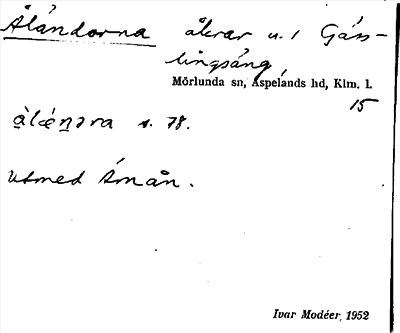 Åländorna åkrar u. 1 Gäss-
lingsäng,
Mörlunda sn, Aspelands hd, Klm. l.
15
ạ̊lǽṇəra s. 78.
utmed Åmån.
Ivar Modéer, 1952